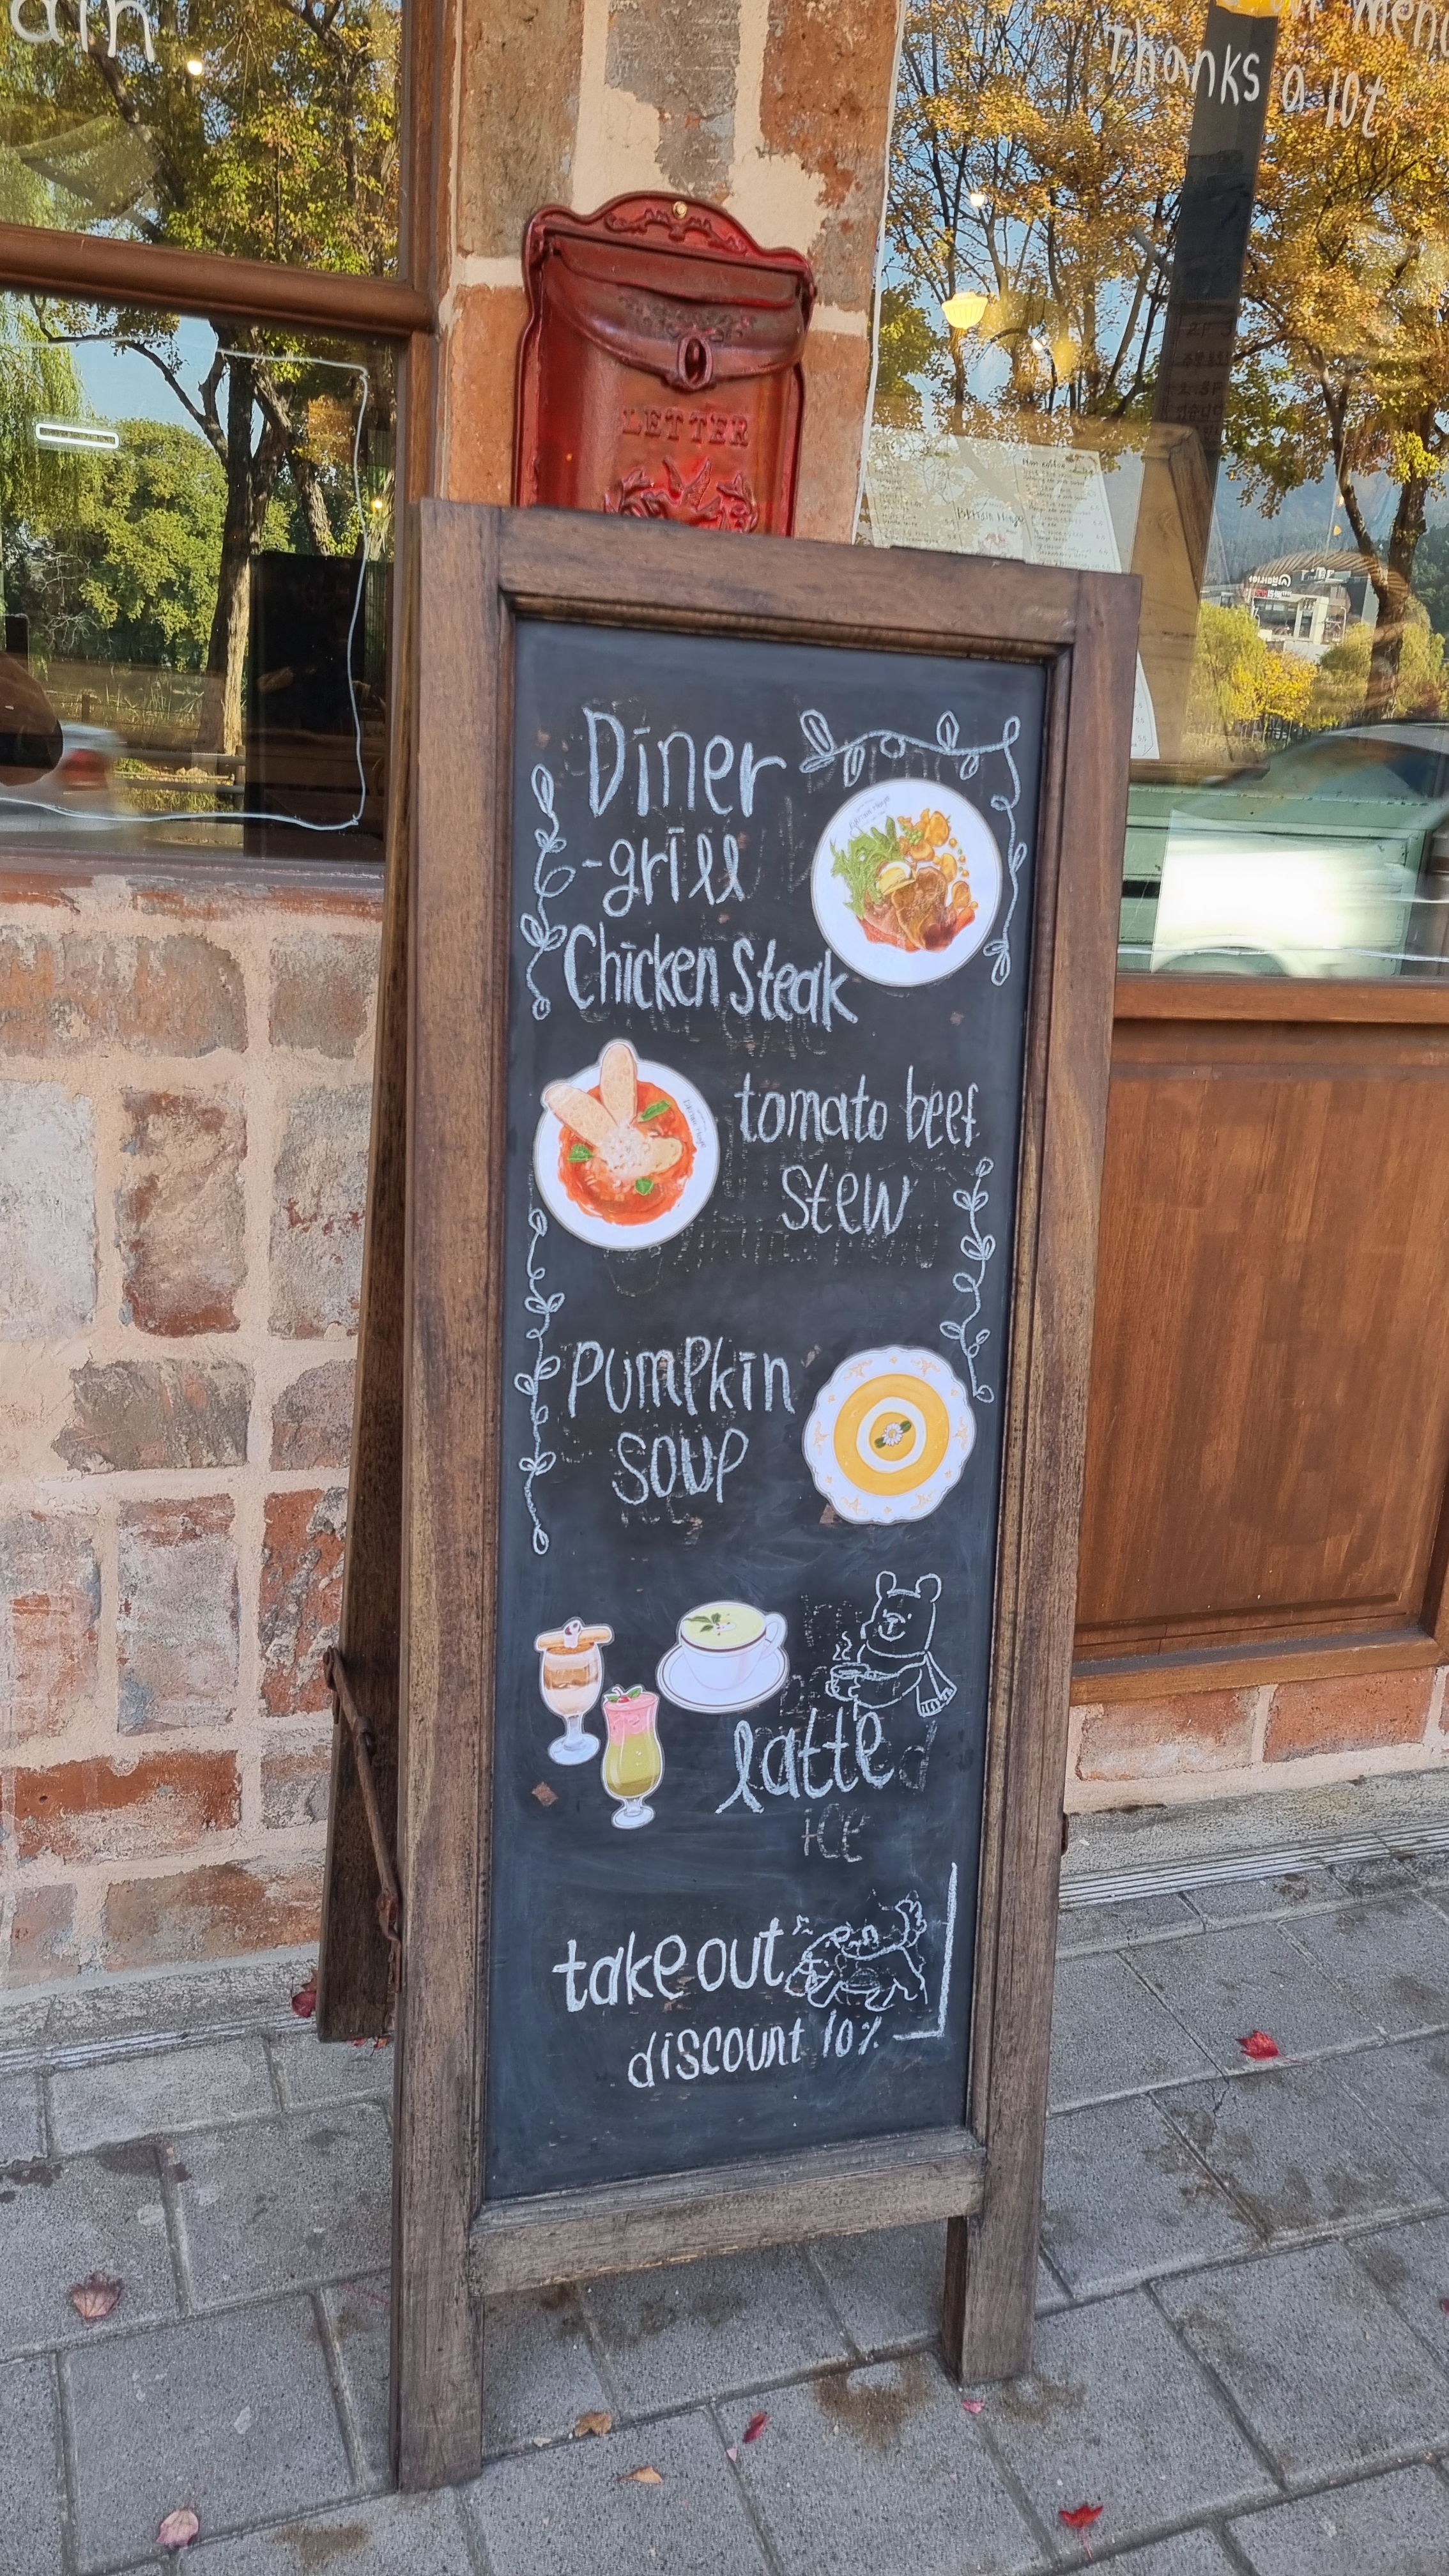 ain
menu
Thanks a lot
LETTER
Diner
-grill
Chicken Steak
tomato beef
stew
Pumpkin
soup
latte
ice
take out
discount 10%